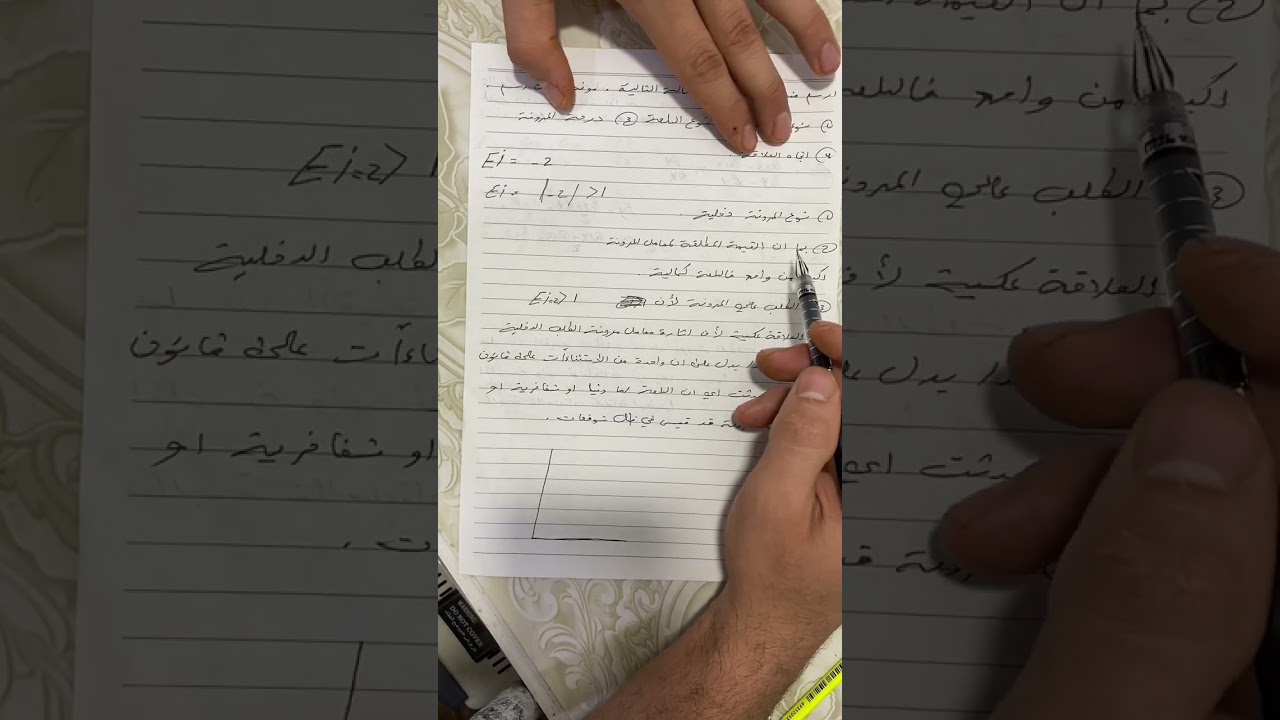 ارسم من الحالة التالية . موضحاً الرسم .
① نوع نوع السلعة ③ درجة المرونة
④ اتجاه العلاقة .
Ei = -2
Ei = |-2| > 1
① نوع المرونة دخلية .
② بما ان القيمة المطلقة لمعامل المرونة
اكبر من واحد فالسلعة كمالية .
③ الطلب عالي المرونة لأن Ei=2>1
العلاقة عكسية لأن اشارة معامل مرونة الطلب الدخلية
يدل على ان واحدة من الأستثناءات على قانون
اي ان السلعة اما دنيا او تفاخرية او
قد قيس في ظل توقعات .
WARNING
DO NOT COVER